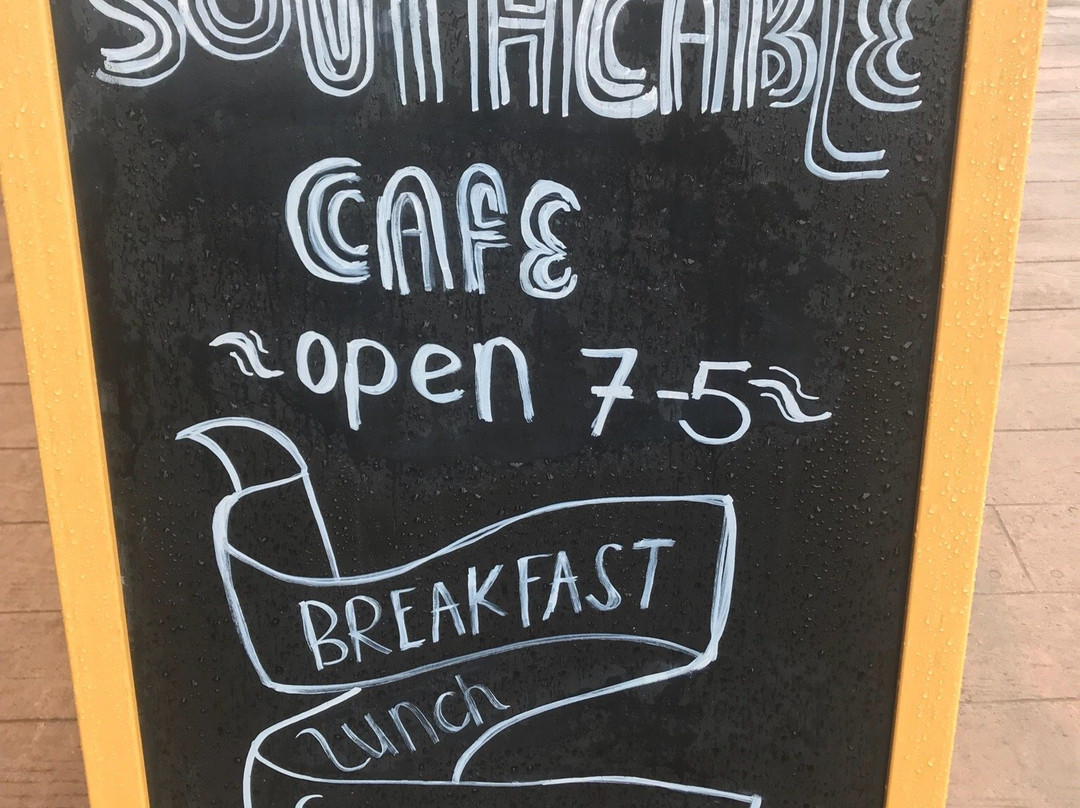 SOUTHCABLE
CAFE
open 7-5
BREAKFAST
Lunch